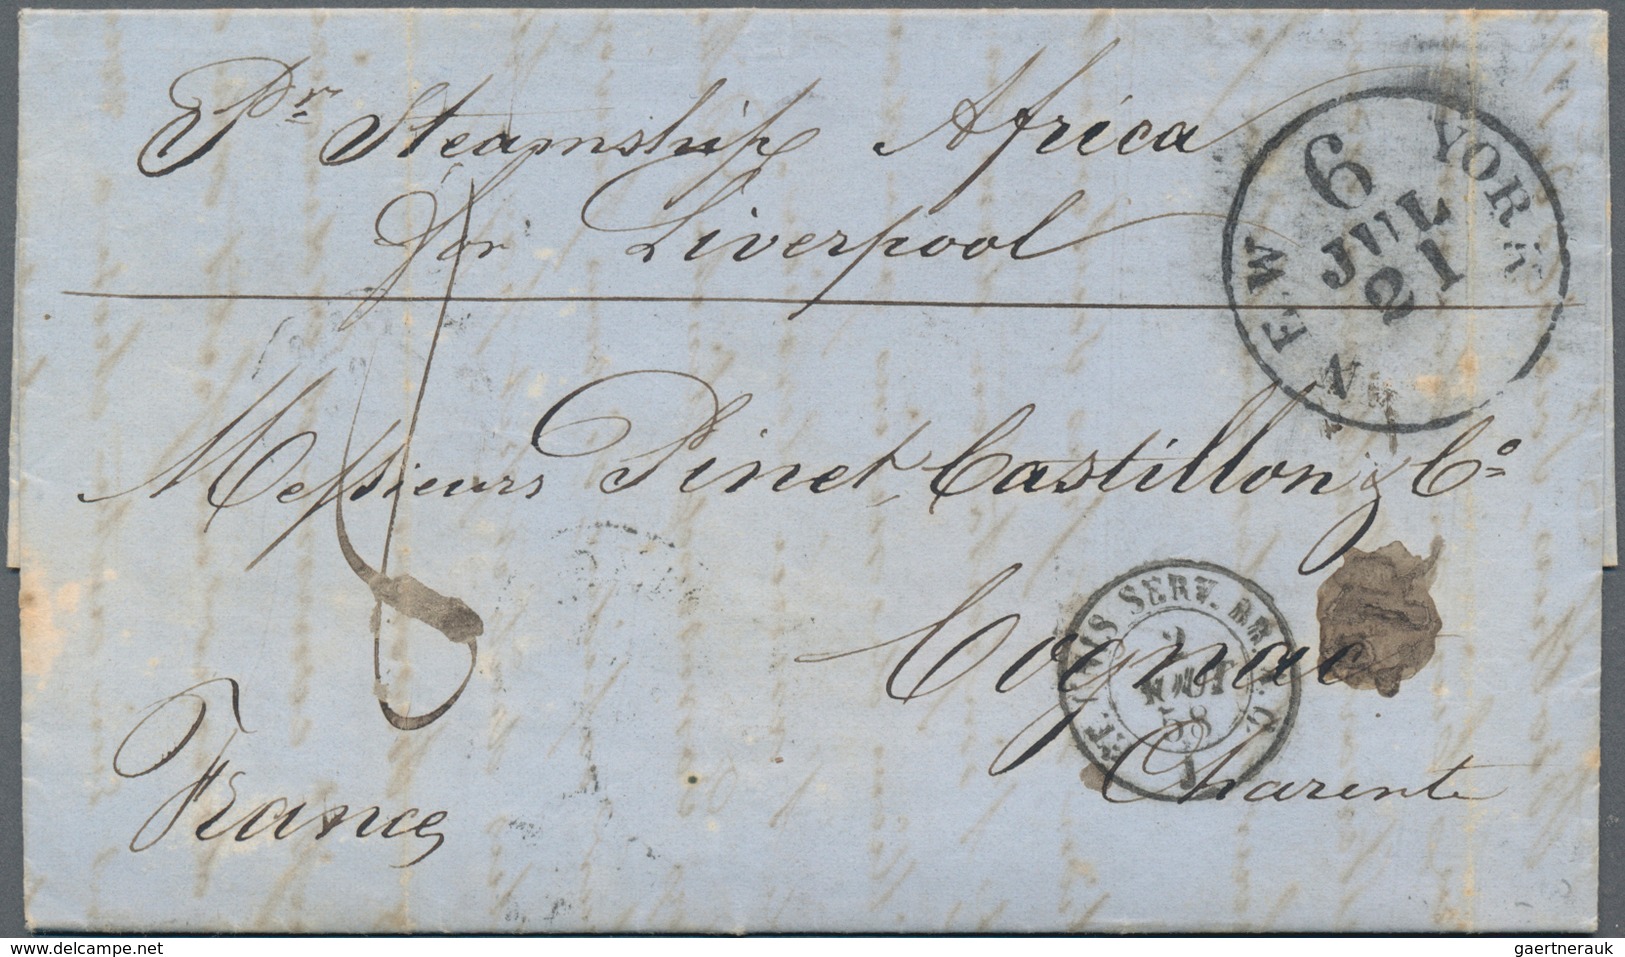 Pr Steamship Africa
for Liverpool
NEW YORK
6
JUL
21
Messieurs Pinet Castillon & Co
Cognac
Charente
France
ET. UNIS SERV. BR. A.C.
2
AOUT
58
delcampe.net
gaertnerauk